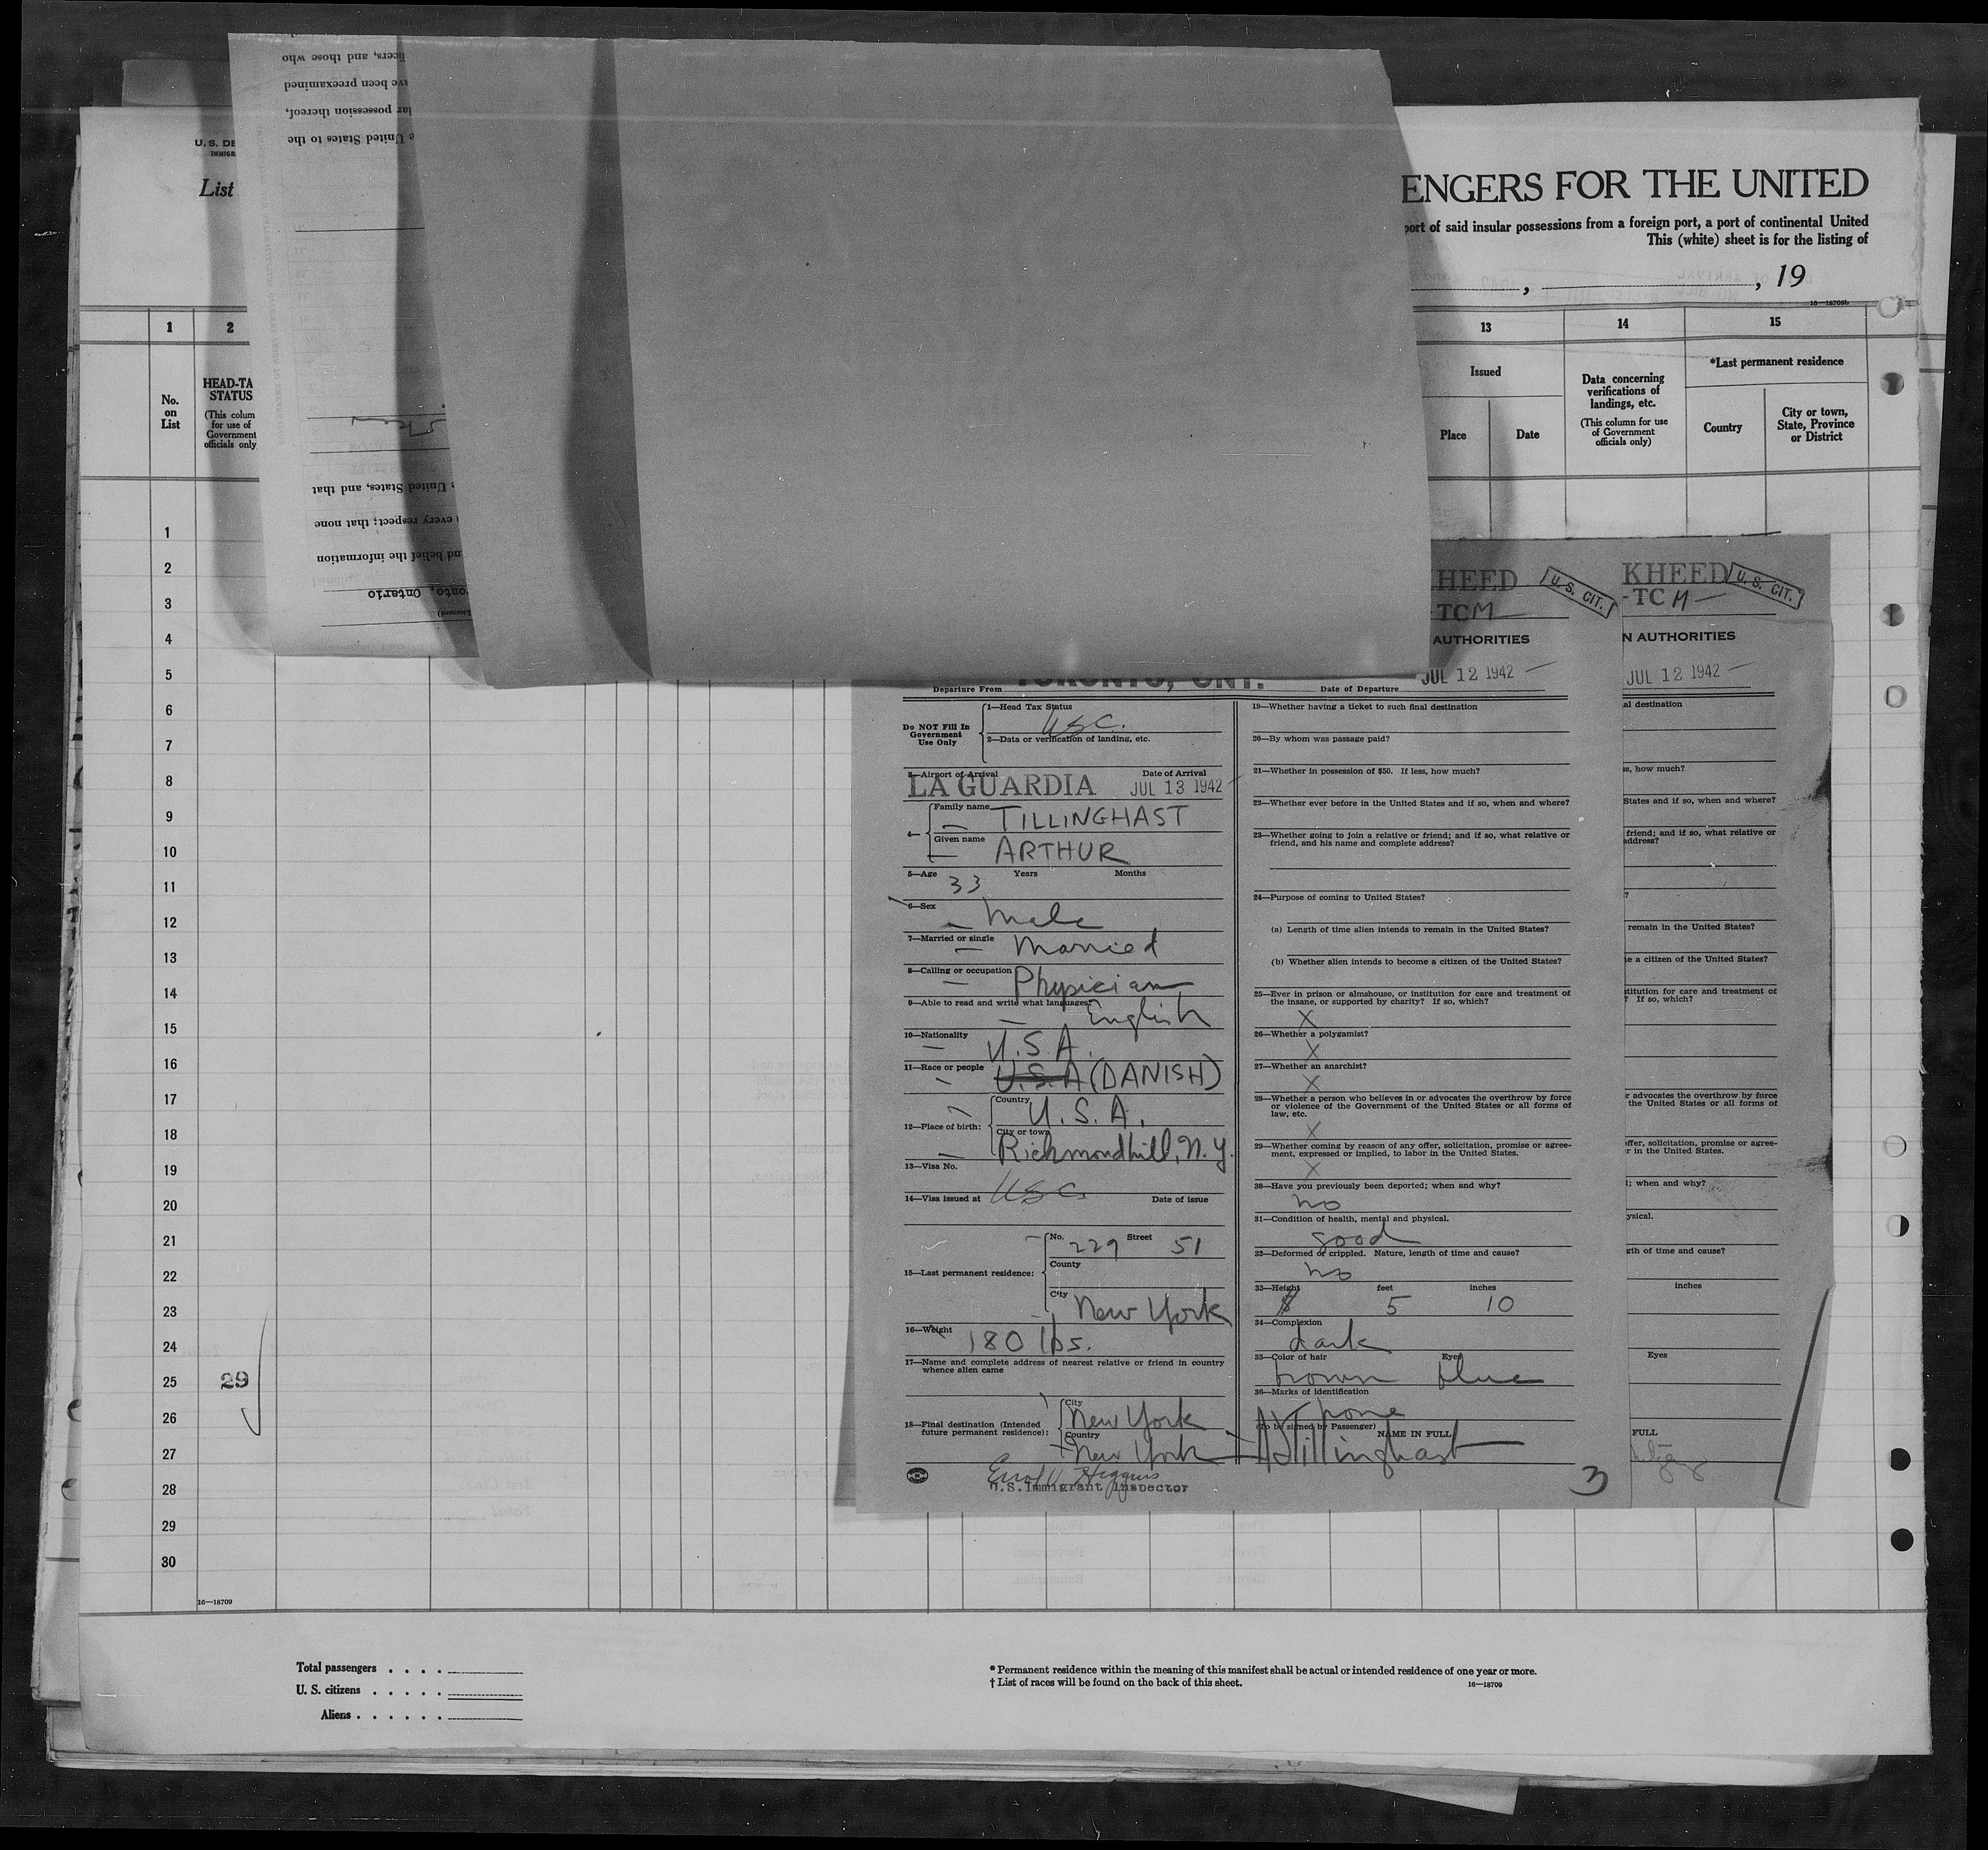 U. S. DE
IMMIGRA
List
licers, and those who
ave been preexamined
lar possession thereof,
e United States to the
United States, and that
every respect; that none
nd belief the information
onto, Ontario
ENGERS FOR THE UNITED
port of said insular possessions from a foreign port, a port of continental United
This (white) sheet is for the listing of
, , 19
16—18709b
1 2 13 14 15
No. on List
HEAD-TA
STATUS
(This colum
for use of
Government
officials only
Issued
Place Date
Data concerning
verifications of
landings, etc.
(This column for use
of Government
officials only)
*Last permanent residence
Country
City or town,
State, Province
or District
1
2
3
4
5
6
7
8
9
10
11
12
13
14
15
16
17
18
19
20
21
22
23
24
25 29
26
27
28
29
30
16—18709
HEED U. S. CIT.
-TCM
AUTHORITIES
Departure From TORONTO, ONT. Date of Departure JUL 12 1942
Do NOT Fill In
Government
Use Only
1—Head Tax Status
USC.
2—Data or verification of landing, etc.
3—Airport of Arrival Date of Arrival
LA GUARDIA JUL 13 1942
4— Family name TILLINGHAST
Given name ARTHUR
5—Age 33 Years Months
6—Sex Male
7—Married or single Married
8—Calling or occupation Physician
9—Able to read and write what languages? English
10—Nationality U.S.A.
11—Race or people U.S.A (DANISH)
12—Place of birth: Country U.S.A.
City or town Richmondhill, N.Y.
13—Visa No.
14—Visa issued at USC. Date of issue
15—Last permanent residence: No. 229 Street 51
County
City New York
16—Weight 180 lbs.
17—Name and complete address of nearest relative or friend in country
whence alien came
18—Final destination (Intended
future permanent residence):
City New York
Country New York
Errol V. Higgins
U.S. Immigrant Inspector
19—Whether having a ticket to such final destination
20—By whom was passage paid?
21—Whether in possession of $50. If less, how much?
22—Whether ever before in the United States and if so, when and where?
23—Whether going to join a relative or friend; and if so, what relative or
friend, and his name and complete address?
24—Purpose of coming to United States?
(a) Length of time alien intends to remain in the United States?
(b) Whether alien intends to become a citizen of the United States?
25—Ever in prison or almshouse, or institution for care and treatment of
the insane, or supported by charity? If so, which?
X
26—Whether a polygamist?
X
27—Whether an anarchist?
X
28—Whether a person who believes in or advocates the overthrow by force
or violence of the Government of the United States or all forms of
law, etc.
X
29—Whether coming by reason of any offer, solicitation, promise or agree-
ment, expressed or implied, to labor in the United States.
X
30—Have you previously been deported; when and why?
no
31—Condition of health, mental and physical.
good
32—Deformed or crippled. Nature, length of time and cause?
no
33—Height feet inches
5 10
34—Complexion
dark
35—Color of hair Eyes
brown blue
36—Marks of identification
none
(To be signed by Passenger) NAME IN FULL
A Tillinghast
3
KHEED U. S. CIT.
-TC M
N AUTHORITIES
JUL 12 1942
al destination
s, how much?
States and if so, when and where?
friend; and if so, what relative or
address?
?
remain in the United States?
e a citizen of the United States?
stitution for care and treatment of
? If so, which?
r advocates the overthrow by force
the United States or all forms of
offer, solicitation, promise or agree-
r in the United States.
; when and why?
ysical.
gth of time and cause?
inches
Eyes
FULL
Total passengers . . . .
U. S. citizens . . . . .
Aliens . . . . . .
* Permanent residence within the meaning of this manifest shall be actual or intended residence of one year or more.
† List of races will be found on the back of this sheet. 16—18709